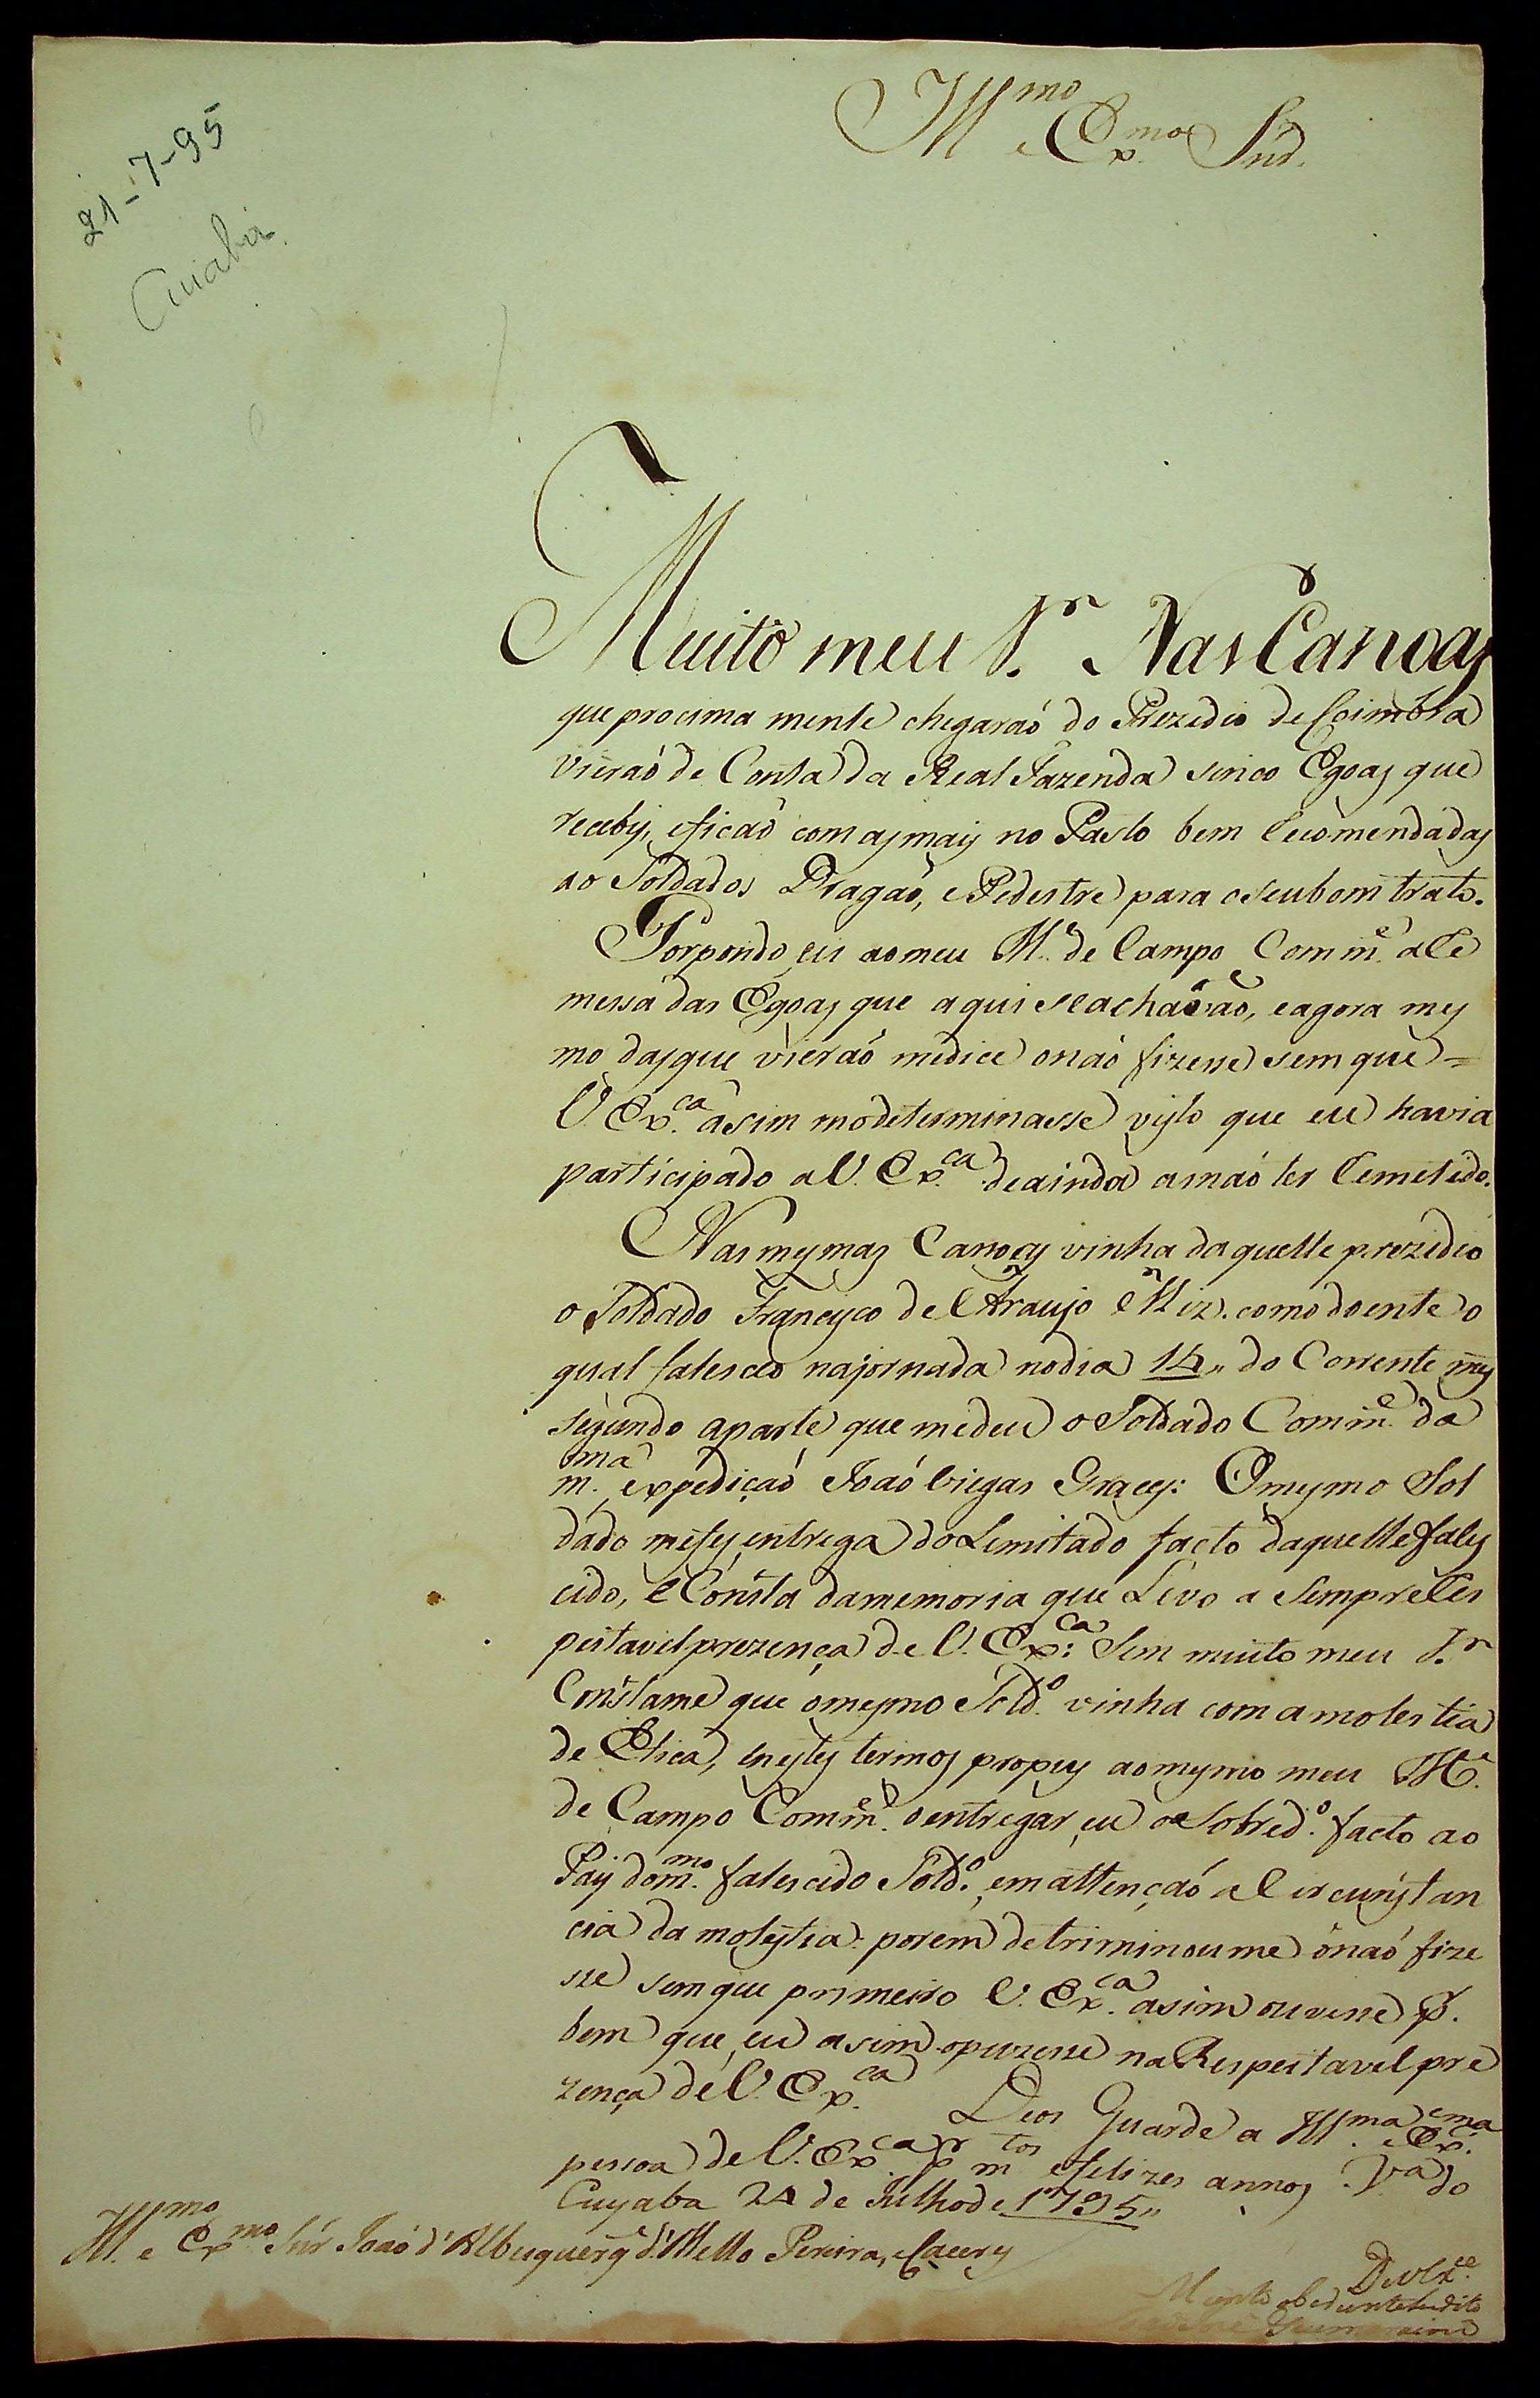 21-7-95
Cuiabá
Ill.mo e Ex.mo Snr.
Muito meu S.r Nas Canoas
que procima mente chegaraó do Prezidio de Coimbra
vieraó de Conta da Real Fazenda sinco Egoas que
receby, eficaó com as mais no Pasto bem Recomendadas
ao Soldados Dragaó, e Pedestre para o seu bom trato.
Porpondo eu ao meu M.e de Campo Comm.e a Re
messa das Egoas que aqui se achavão, e agora mes
mo das que vieraó medice o naó fizesse sem que =
V. Ex.ca asim mo determinasse visto que eu havia
participado a V. Ex.ca de ainda as naó ter Remetido.
Nas mesmas Canoas vinha daquelle prezidio
o Soldado Francisco de Araujo como doente o
qual falesceo na jornada no dia 14,, do Corrente mes
segundo aparte que medeu o Soldado Comm.e da
m.ma expediçaó Joaó Viegas O mesmo Sol
dado mefes entrega do Limitado facto daquelle fales
cido, e Consta da memoria que Levo a Sempre Res
peitavel prezença de V. Ex.ca: Sem muito meu S.r
Constame que o mesmo Sold.o vinha com a molestia
de Etica, enestes termos propus ao mesmo meu M.e
de Campo Comm.e o entregar eu o Sobred.o facto ao
Pay do m.mo falescido Sold.o, em attençaó a Circunstan
cia da molestia: porem detriminoume o naó fize
sse sem que primeiro V. Ex.ca asim ouvesse p.r
bem que eu asim opuzesse na Respeitavel pre
zença de V. Ex.ca Deos Guarde a Ill.ma e Ex.ma
pessoa de V. Ex.ca p.r m.tos efelizes annos V.a do
Cuyaba 21 de Julho de 1795,,
Ill.mo e Ex.mo Snr Joaó d'Albuquerq.e d'Mello Pereira, e Caceres
De V Ex.ce
Muito obediente Sudito